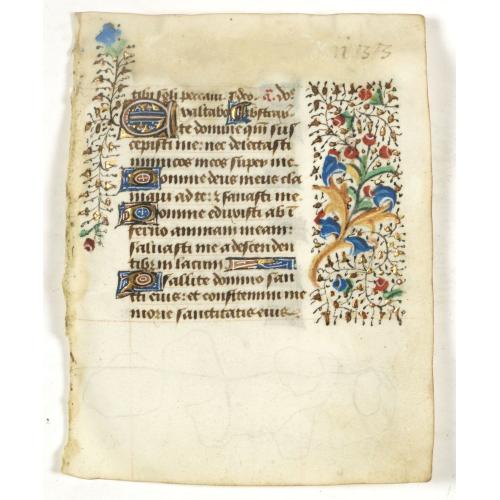 tibi soli peccavi Deo. a. do.
Exaltabo abstrau
te domine qm̄ sus
cepisti me: nec delectasti
inimicos meos super me.
Domine deus meus cla
maui ad te: et sanasti me.
Domine eduxisti ab i
ferno animam meam:
saluasti me a descenden
tib; in lacum.
Psallite domino san
cti eius: et confitemini me
morie sanctitatis eius.